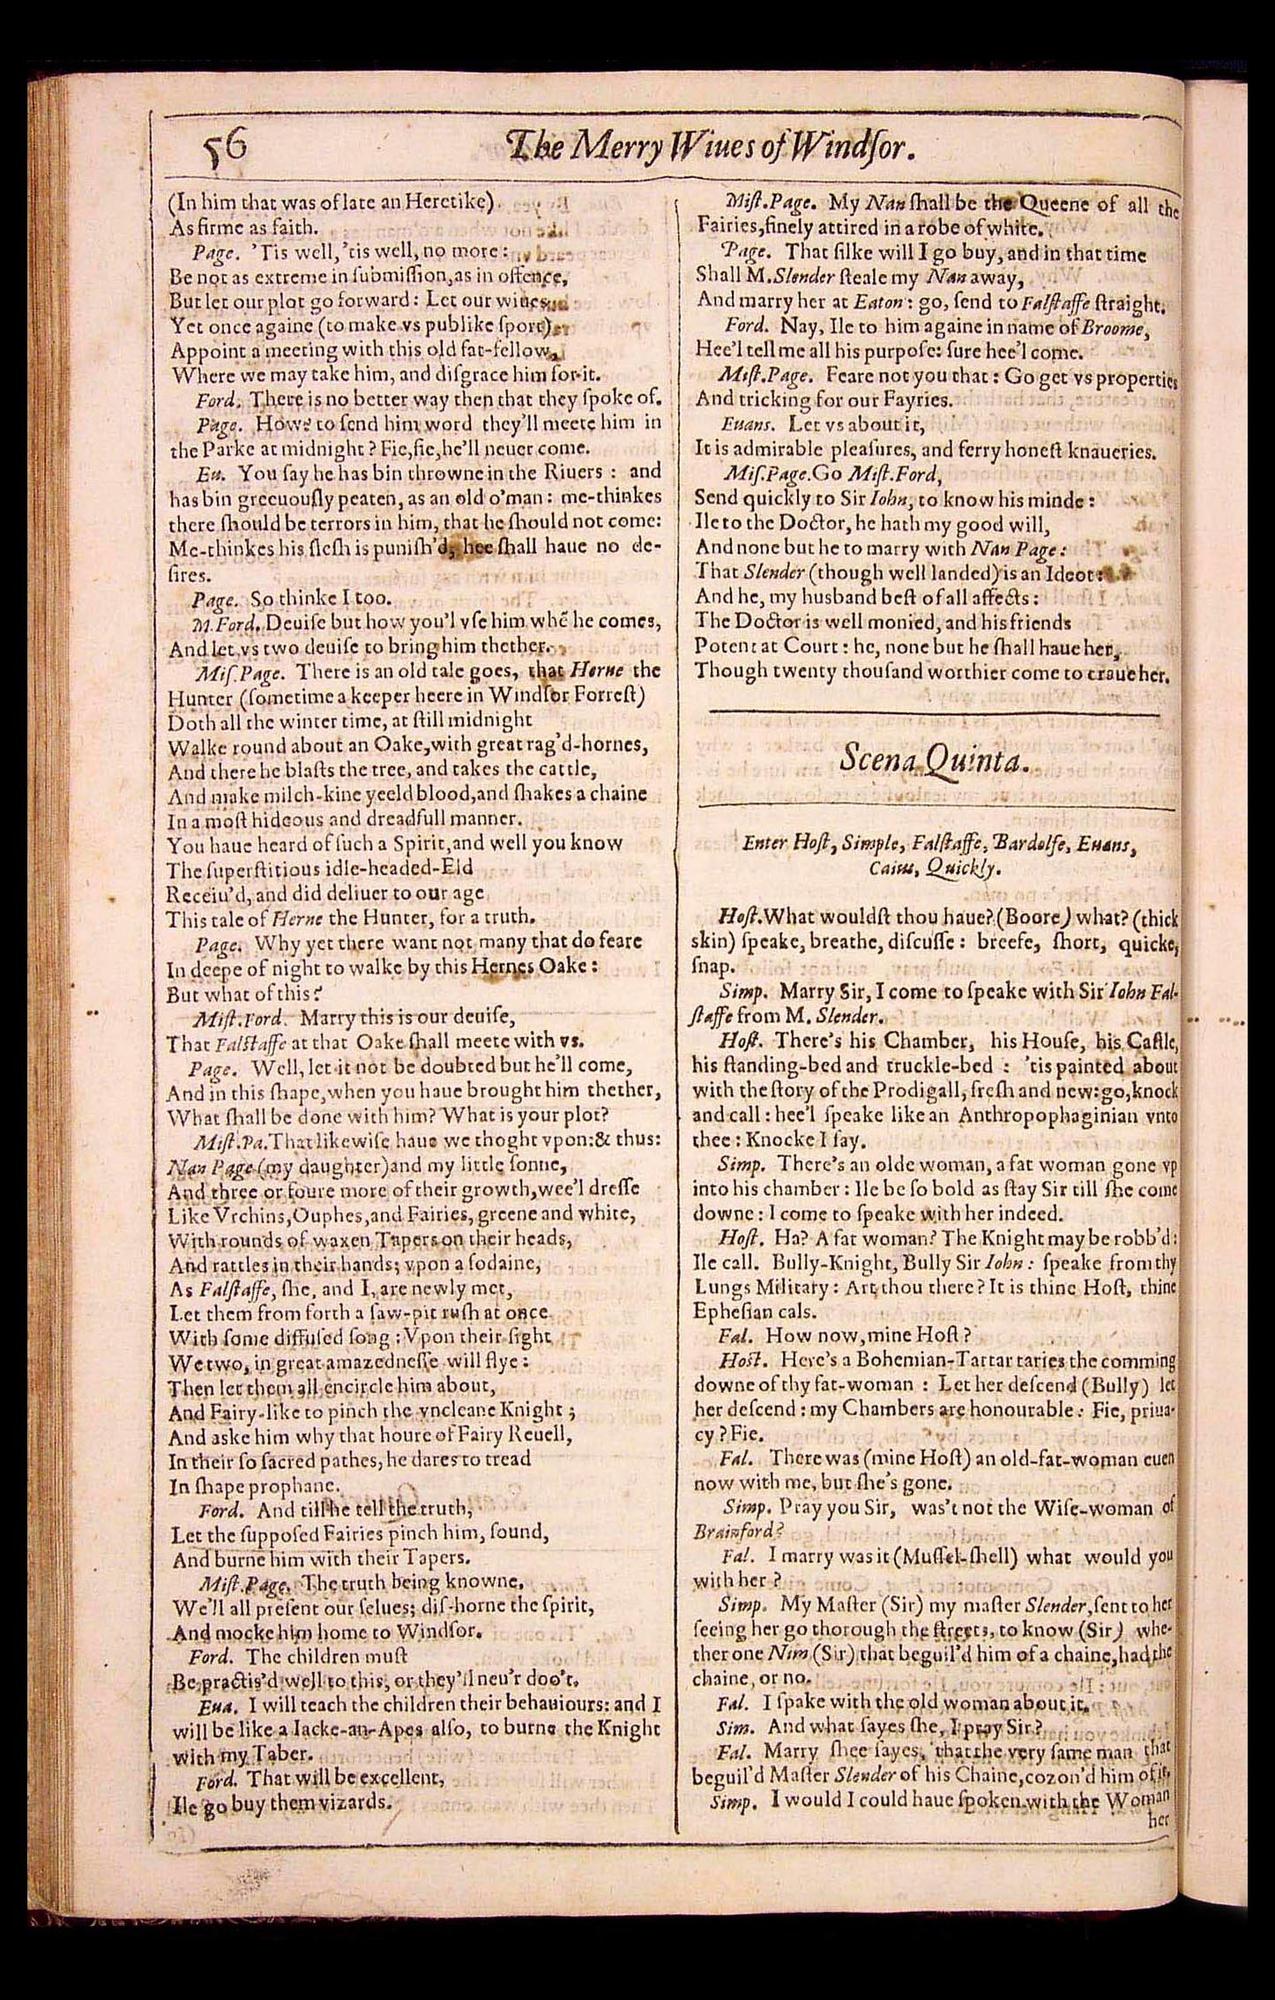 56
The Merry Wiues of Windſor.
(In him that was of late an Heretike)
As firme as faith.
Page. 'Tis well, 'tis well, no more:
Be not as extreme in ſubmiſſion, as in offence,
But let our plot go forward: Let our wiues
Yet once againe (to make vs publike ſport)
Appoint a meeting with this old fat-fellow,
Where we may take him, and diſgrace him for it.
Ford. There is no better way then that they ſpoke of.
Page. How? to ſend him word they'll meete him in
the Parke at midnight? Fie, fie, he'll neuer come.
Eu. You ſay he has bin throwne in the Riuers: and
has bin greeuouſly peaten, as an old o'man: me-thinkes
there ſhould be terrors in him, that he ſhould not come:
Me-thinkes his fleſh is puniſh'd, hee ſhall haue no de-
ſires.
Page. So thinke I too.
M.Ford. Deuiſe but how you'l vſe him whẽ he comes,
And let vs two deuiſe to bring him thether.
Miſ.Page. There is an old tale goes, that Herne the
Hunter (ſometime a keeper heere in Windſor Forreſt)
Doth all the winter time, at ſtill midnight
Walke round about an Oake, with great rag'd-hornes,
And there he blaſts the tree, and takes the cattle,
And make milch-kine yeeld blood, and ſhakes a chaine
In a moſt hideous and dreadfull manner.
You haue heard of ſuch a Spirit, and well you know
The ſuperſtitious idle-headed-Eld
Receiu'd, and did deliuer to our age
This tale of Herne the Hunter, for a truth.
Page. Why yet there want not many that do feare
In deepe of night to walke by this Hernes Oake:
But what of this?
Miſt.Ford. Marry this is our deuiſe,
That Falſtaffe at that Oake ſhall meete with vs.
Page. Well, let it not be doubted but he'll come,
And in this ſhape, when you haue brought him thether,
What ſhall be done with him? What is your plot?
Miſt.Pa. That likewiſe haue we thoght vpon: & thus:
Nan Page (my daughter) and my little ſonne,
And three or foure more of their growth, wee'l dreſſe
Like Vrchins, Ouphes, and Fairies, greene and white,
With rounds of waxen Tapers on their heads,
And rattles in their hands; vpon a ſodaine,
As Falſtaffe, ſhe, and I, are newly met,
Let them from forth a ſaw-pit ruſh at once
With ſome diffuſed ſong: Vpon their ſight
We two, in great amazedneſſe will flye:
Then let them all encircle him about,
And Fairy-like to pinch the vncleane Knight;
And aske him why that houre of Fairy Reuell,
In their ſo ſacred pathes, he dares to tread
In ſhape prophane.
Ford. And till he tell the truth,
Let the ſuppoſed Fairies pinch him, ſound,
And burne him with their Tapers.
Miſt.Page. The truth being knowne,
We'll all preſent our ſelues; diſ-horne the ſpirit,
And mocke him home to Windſor.
Ford. The children muſt
Be practis'd well to this, or they'll neu'r doo't.
Eua. I will teach the children their behauiours: and I
will be like a Iacke-an-Apes alſo, to burne the Knight
with my Taber.
Ford. That will be excellent,
Ile go buy them vizards.
Miſt.Page. My Nan ſhall be the Queene of all the
Fairies, finely attired in a robe of white.
Page. That ſilke will I go buy, and in that time
Shall M. Slender ſteale my Nan away,
And marry her at Eaton: go, ſend to Falſtaffe ſtraight.
Ford. Nay, Ile to him againe in name of Broome,
Hee'l tell me all his purpoſe: ſure hee'l come.
Miſt.Page. Feare not you that: Go get vs properties
And tricking for our Fayries.
Euans. Let vs about it,
It is admirable pleaſures, and ferry honeſt knaueries.
Miſ.Page. Go Miſt.Ford,
Send quickly to Sir Iohn, to know his minde:
Ile to the Doctor, he hath my good will,
And none but he to marry with Nan Page:
That Slender (though well landed) is an Ideot:
And he, my husband beſt of all affects:
The Doctor is well monied, and his friends
Potent at Court: he, none but he ſhall haue her,
Though twenty thouſand worthier come to craue her.
Scena Quinta.
Enter Hoſt, Simple, Falſtaffe, Bardolfe, Euans,
Caius, Quickly.
Hoſt. What wouldſt thou haue? (Boore) what? (thick
skin) ſpeake, breathe, diſcuſſe: breefe, ſhort, quicke,
ſnap.
Simp. Marry Sir, I come to ſpeake with Sir Iohn Fal-
ſtaffe from M. Slender.
Hoſt. There's his Chamber, his Houſe, his Caſtle,
his ſtanding-bed and truckle-bed: 'tis painted about
with the ſtory of the Prodigall, freſh and new: go, knock
and call: hee'l ſpeake like an Anthropophaginian vnto
thee: Knocke I ſay.
Simp. There's an olde woman, a fat woman gone vp
into his chamber: Ile be ſo bold as ſtay Sir till ſhe come
downe: I come to ſpeake with her indeed.
Hoſt. Ha? A fat woman? The Knight may be robb'd:
Ile call. Bully-Knight, Bully Sir Iohn: ſpeake from thy
Lungs Military: Art thou there? It is thine Hoſt, thine
Epheſian cals.
Fal. How now, mine Hoſt?
Hoſt. Here's a Bohemian-Tartar taries the comming
downe of thy fat-woman: Let her deſcend (Bully) let
her deſcend: my Chambers are honourable: Fie, priua-
cy? Fie.
Fal. There was (mine Hoſt) an old-fat-woman euen
now with me, but ſhe's gone.
Simp. Pray you Sir, was't not the Wiſe-woman of
Brainford?
Fal. I marry was it (Muſſel-ſhell) what would you
with her?
Simp. My Maſter (Sir) my maſter Slender, ſent to her
ſeeing her go thorough the ſtreets, to know (Sir) whe-
ther one Nim (Sir) that beguil'd him of a chaine, had the
chaine, or no.
Fal. I ſpake with the old woman about it.
Sim. And what ſayes ſhe, I pray Sir?
Fal. Marry ſhee ſayes, that the very ſame man that
beguil'd Maſter Slender of his Chaine, cozon'd him of it.
Simp. I would I could haue ſpoken with the Woman
her